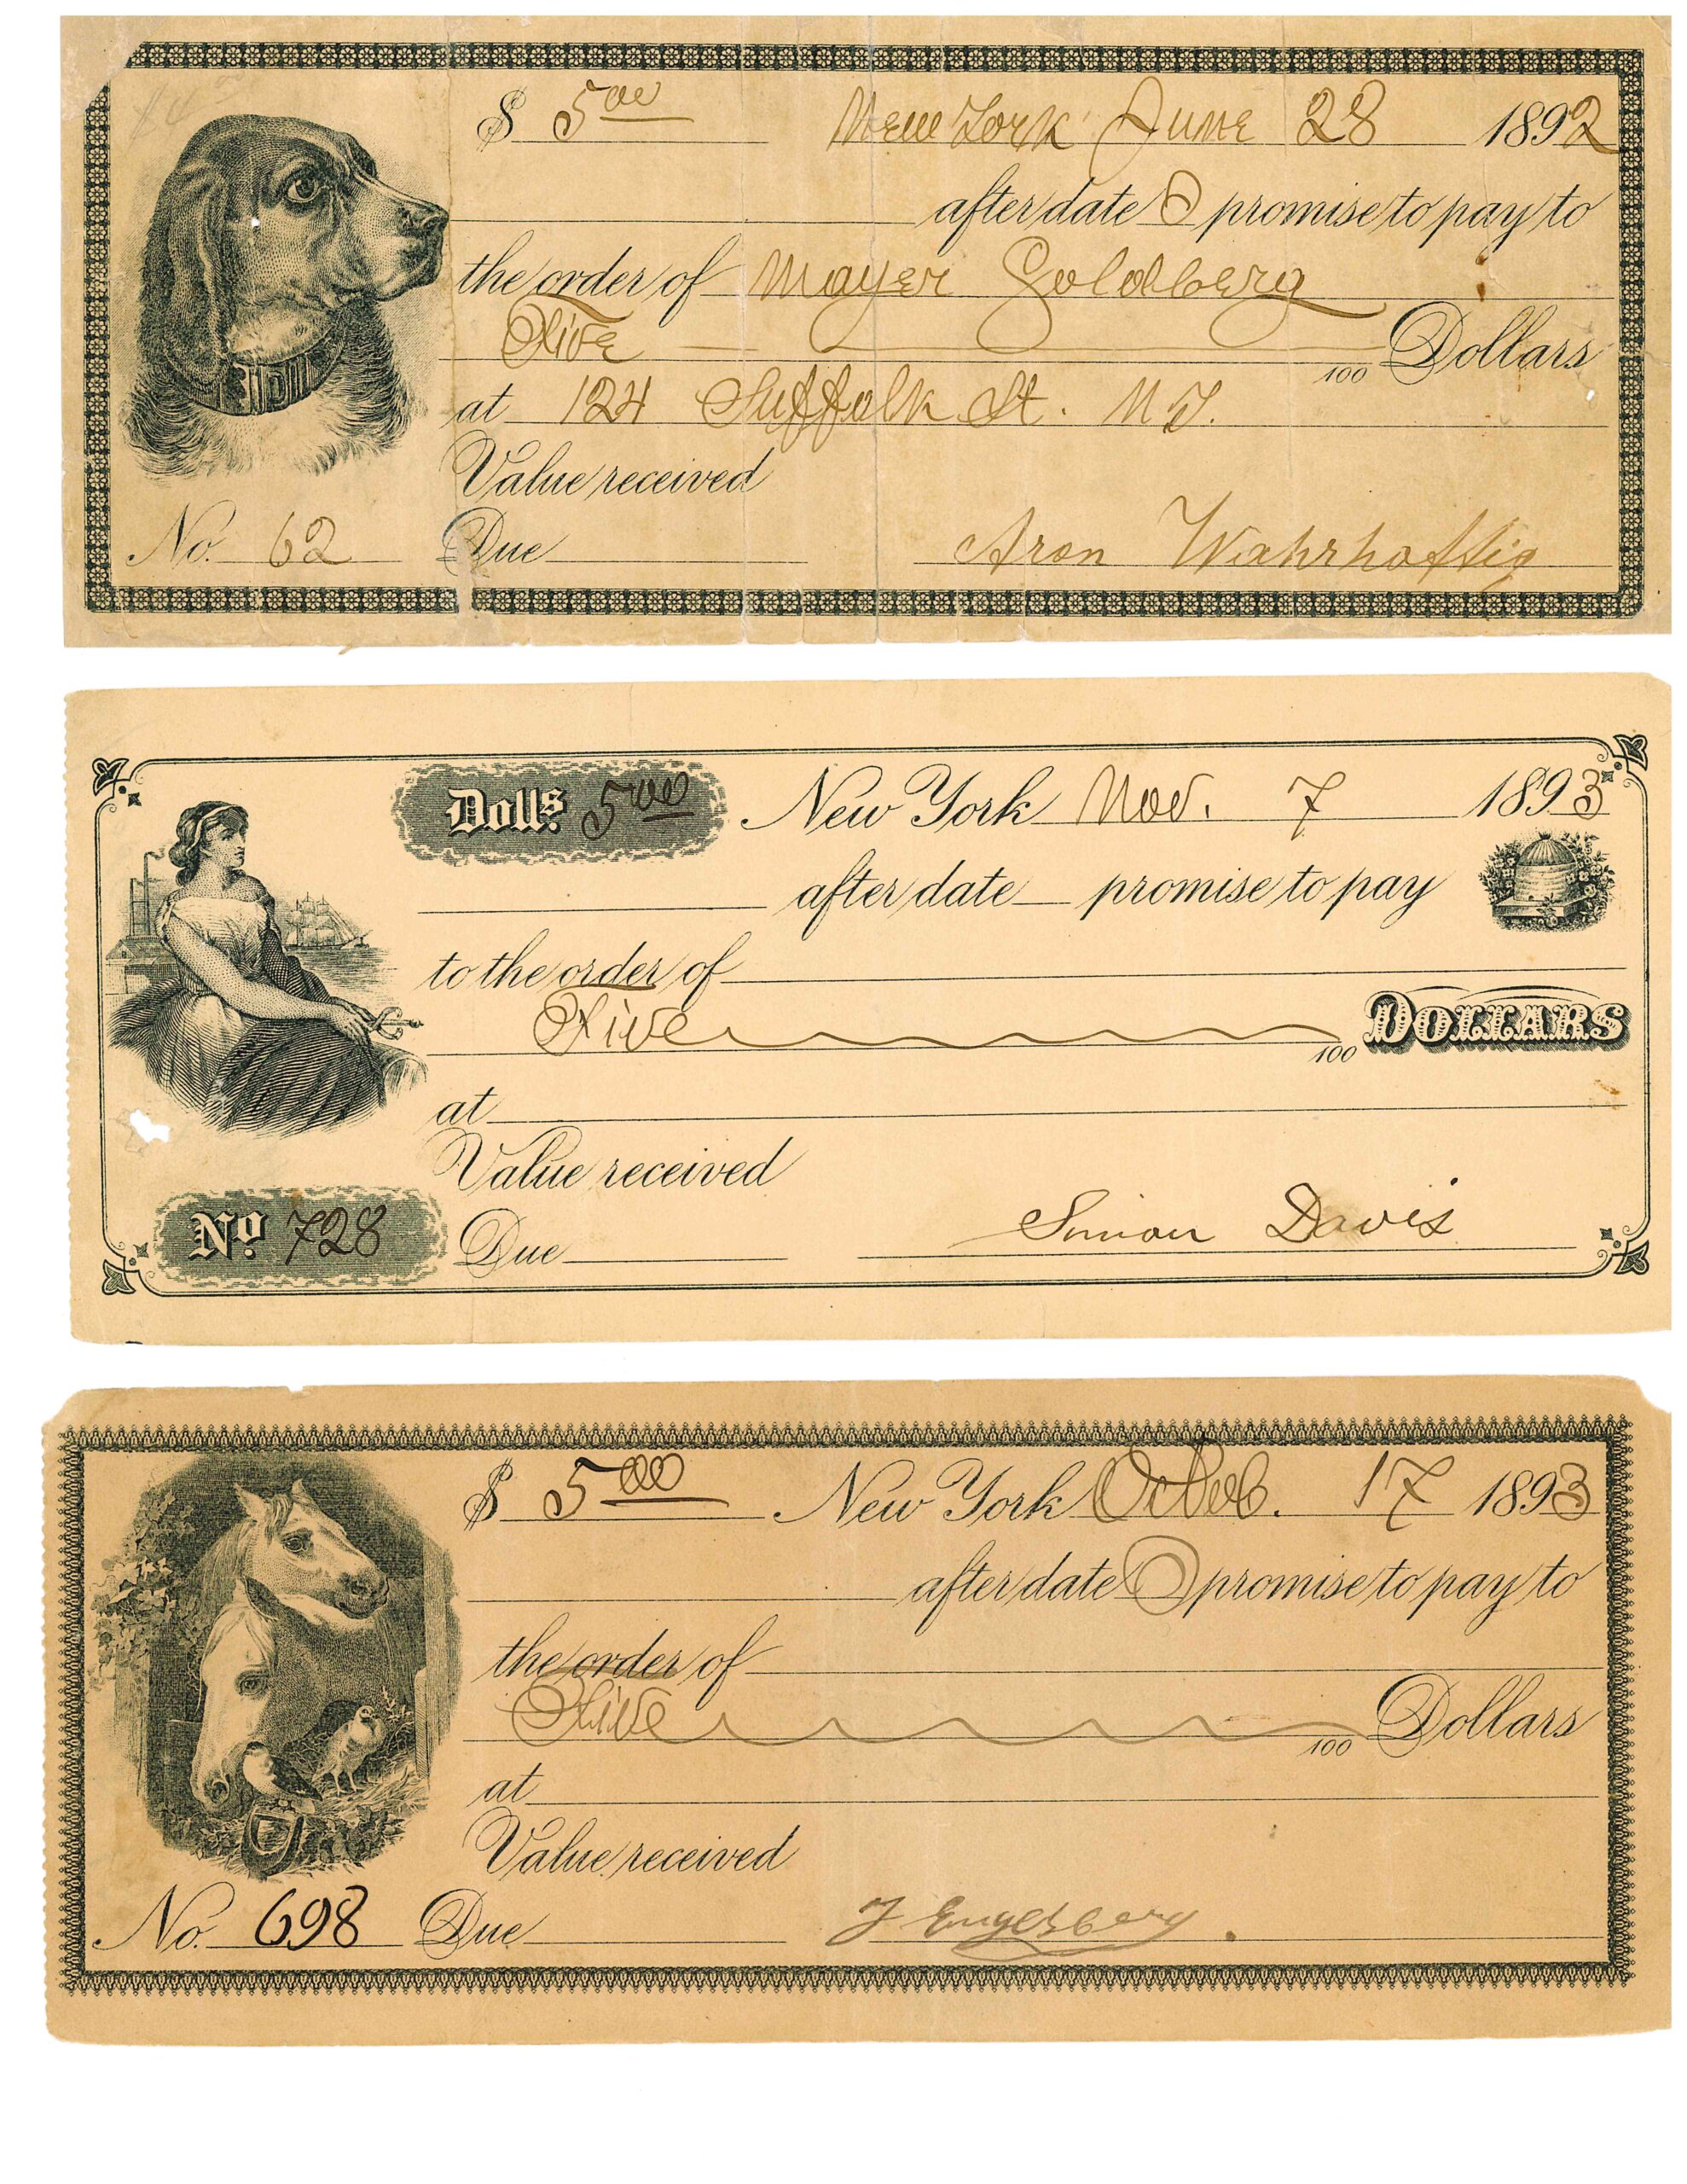 $ 5 00 New York June 28 1892
after date I promise to pay to
the order of Mayer Goldberg
Five 100 Dollars
at 124 Suffolk St. N Y.
Value received
No. 62 Due Aron Wahrhaftig
Dolls. 5 00 New York Nov. 7 1893
after date promise to pay
to the order of
Five 100 DOLLARS
at
Value received
No. 728 Due Simon Davis
$ 5 00 New York Octob. 17 1893
after date I promise to pay to
the order of
Five 100 Dollars
at
Value received
No. 698 Due J Engelsberg.